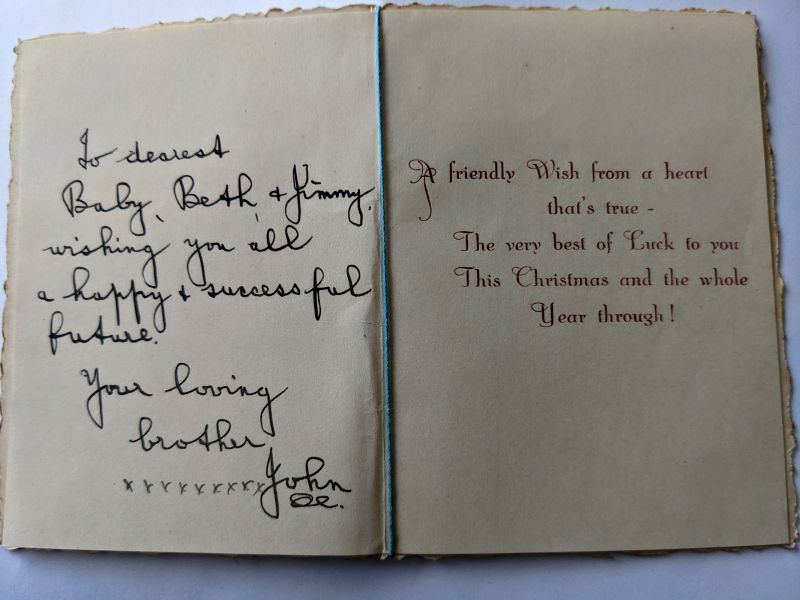 To dearest
Baby, Beth, & Jimmy,
wishing you all
a happy & successful
future.
Your loving
brother
xxxxxxxxx John
A friendly Wish from a heart
that's true -
The very best of Luck to you
This Christmas and the whole
Year through!